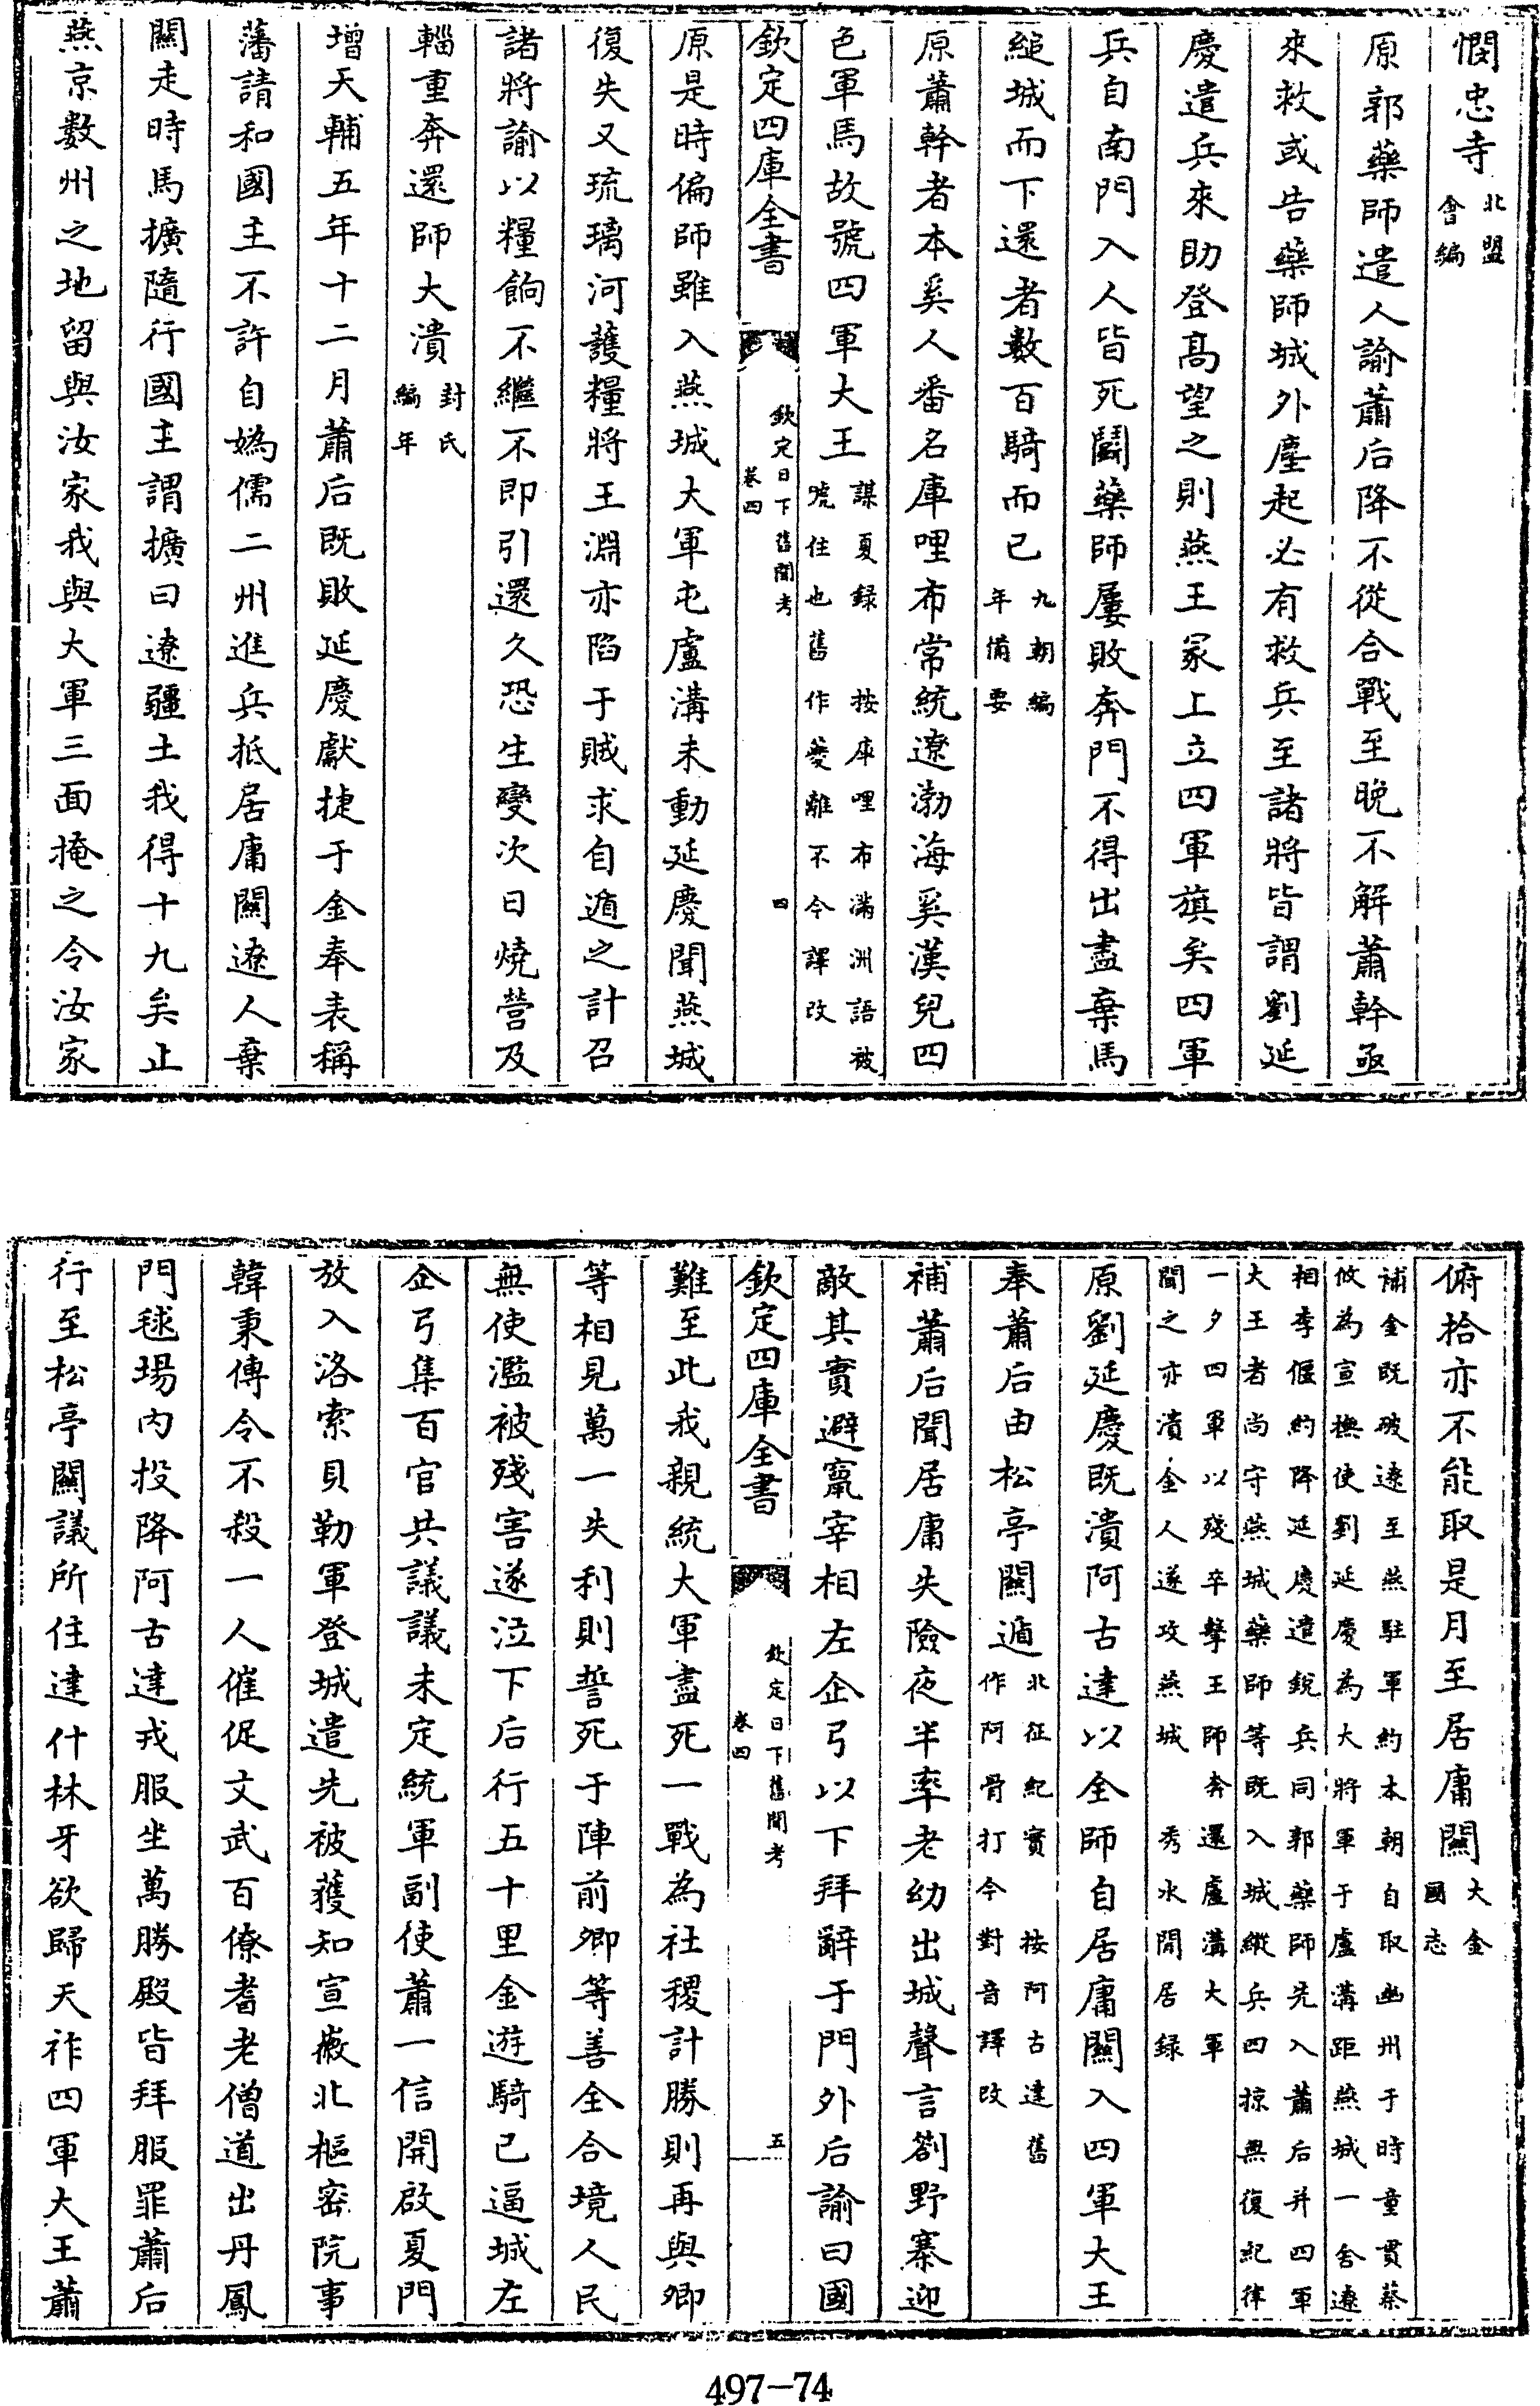 憫忠寺北盟會編
原郭藥師遣人諭蕭后降不從合戰至晚不解蕭幹亟
來救或告藥師城外塵起必有救兵至諸將皆謂劉延
慶遣兵來助登高望之則燕王冢上立四軍旗矣四軍
兵自南門入人皆死鬭藥師屢敗奔門不得出盡棄馬
縋城而下還者數百騎而已九朝編年備要
原蕭幹者本奚人番名庫哩布常統遼渤海奚漢兒四
色軍馬故號四軍大王謀夏録 按庫哩布滿洲語被號住也舊作夔離不今譯改
欽定四庫全書 欽定日下舊聞考 卷四 四
原是時偏師雖入燕城大軍屯盧溝未動延慶聞燕城
復失又琉璃河護糧將王淵亦陷于賊求自遁之計召
諸將諭以糧餉不繼不即引還久恐生變次日燒營及
輜重奔還師大潰封氏編年
增天輔五年十二月蕭后既敗延慶獻捷于金奉表稱
藩請和國主不許自媯儒二州進兵抵居庸關遼人棄
關走時馬擴隨行國主謂擴曰遼疆土我得十九矣止
燕京數州之地留與汝家我與大軍三面掩之令汝家
俯拾亦不能取是月至居庸關大金國志
補金既破遼至燕駐軍約本朝自取幽州于時童貫蔡
攸為宣撫使劉延慶為大將軍于盧溝距燕城一舍遼
相李偓約降延慶遣銳兵同郭藥師先入蕭后并四軍
大王者尚守燕城藥師等既入城縱兵四掠無復紀律
一夕四軍以殘卒擊王師奔還盧溝大軍
聞之亦潰金人遂攻燕城 秀水閒居録
原劉延慶既潰阿古達以全師自居庸關入四軍大王
奉蕭后由松亭關遁北征紀實 按阿古達舊作阿骨打今對音譯改
補蕭后聞居庸失險夜半率老幼出城聲言劄野寨迎
敵其實避竄宰相左企弓以下拜辭于門外后諭曰國
欽定四庫全書 欽定日下舊聞考 卷四 五
難至此我親統大軍盡死一戰為社稷計勝則再與卿
等相見萬一失利則誓死于陣前卿等善全合境人民
無使濫被殘害遂泣下后行五十里金遊騎已逼城左
企弓集百官共議議未定統軍副使蕭一信開啟夏門
放入洛索貝勒軍登城遣先被獲知宣徽北樞密院事
韓秉傳令不殺一人催促文武百僚耆老僧道出丹鳳
門毬場内投降阿古達戎服坐萬勝殿皆拜服罪蕭后
行至松亭關議所住達什林牙欲歸天祚四軍大王蕭
497-74